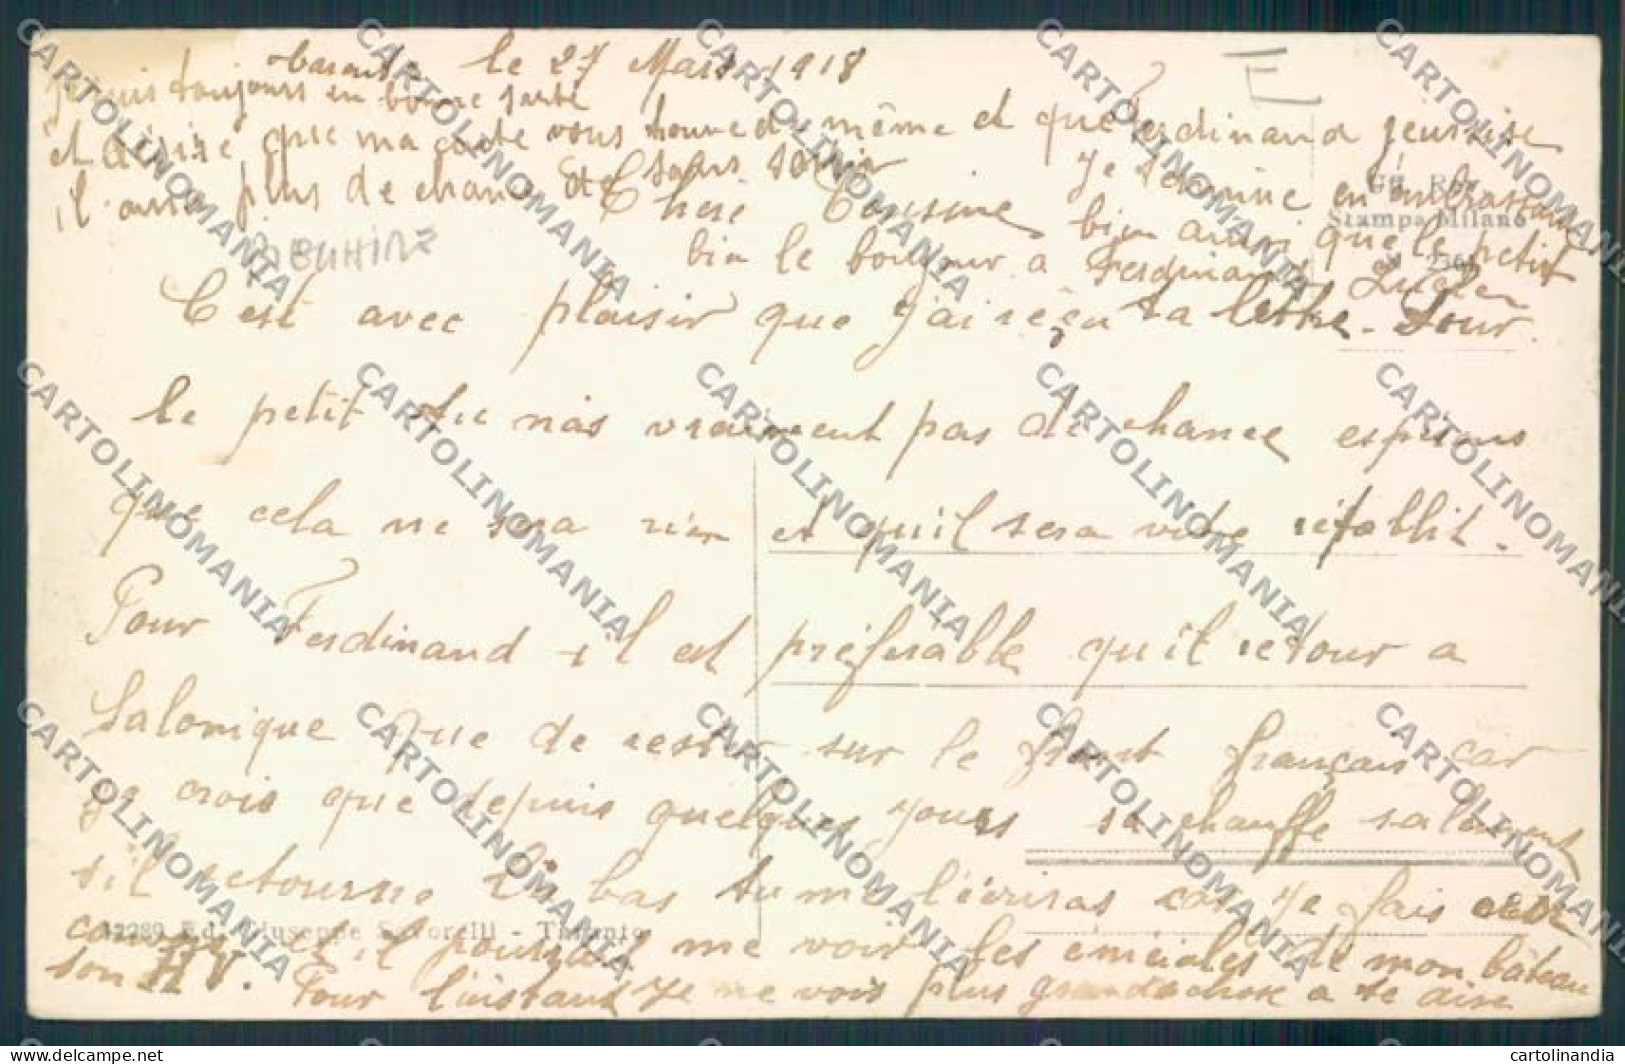 le 27 Mars 1918
Chère Cousine
C'est avec plaisir que j'ai reçu ta lettre. Pour
le petit tu n'as vraiment pas de chance esperons
que cela ne sera rien et qu'il sera vite rétabllit.
Pour Ferdinand il est préférable qu'il retour a
Salonique que de rester sur le front français car
je crois que depuis quelques jours sa chauffe salement
s'il retourne là bas tu me l'écriras car je fais
s'il pourrait me voir les éniciales de mon bâteau
son HV. Pour l'instant je ne vois plus grande chose a te dire
je suis toujours en bonne santé
et désire que ma carte vous trouve de même et que Ferdinand
il aura plus de chance
je termine en embrassant
bien ainsi que le petit
bien le bonjour a Ferdinand
Stampa Milano
12289 Ed. Giuseppe Savorelli - Taranto
CARTOLINOMANIA
cartolinomania.com
cartolinandia